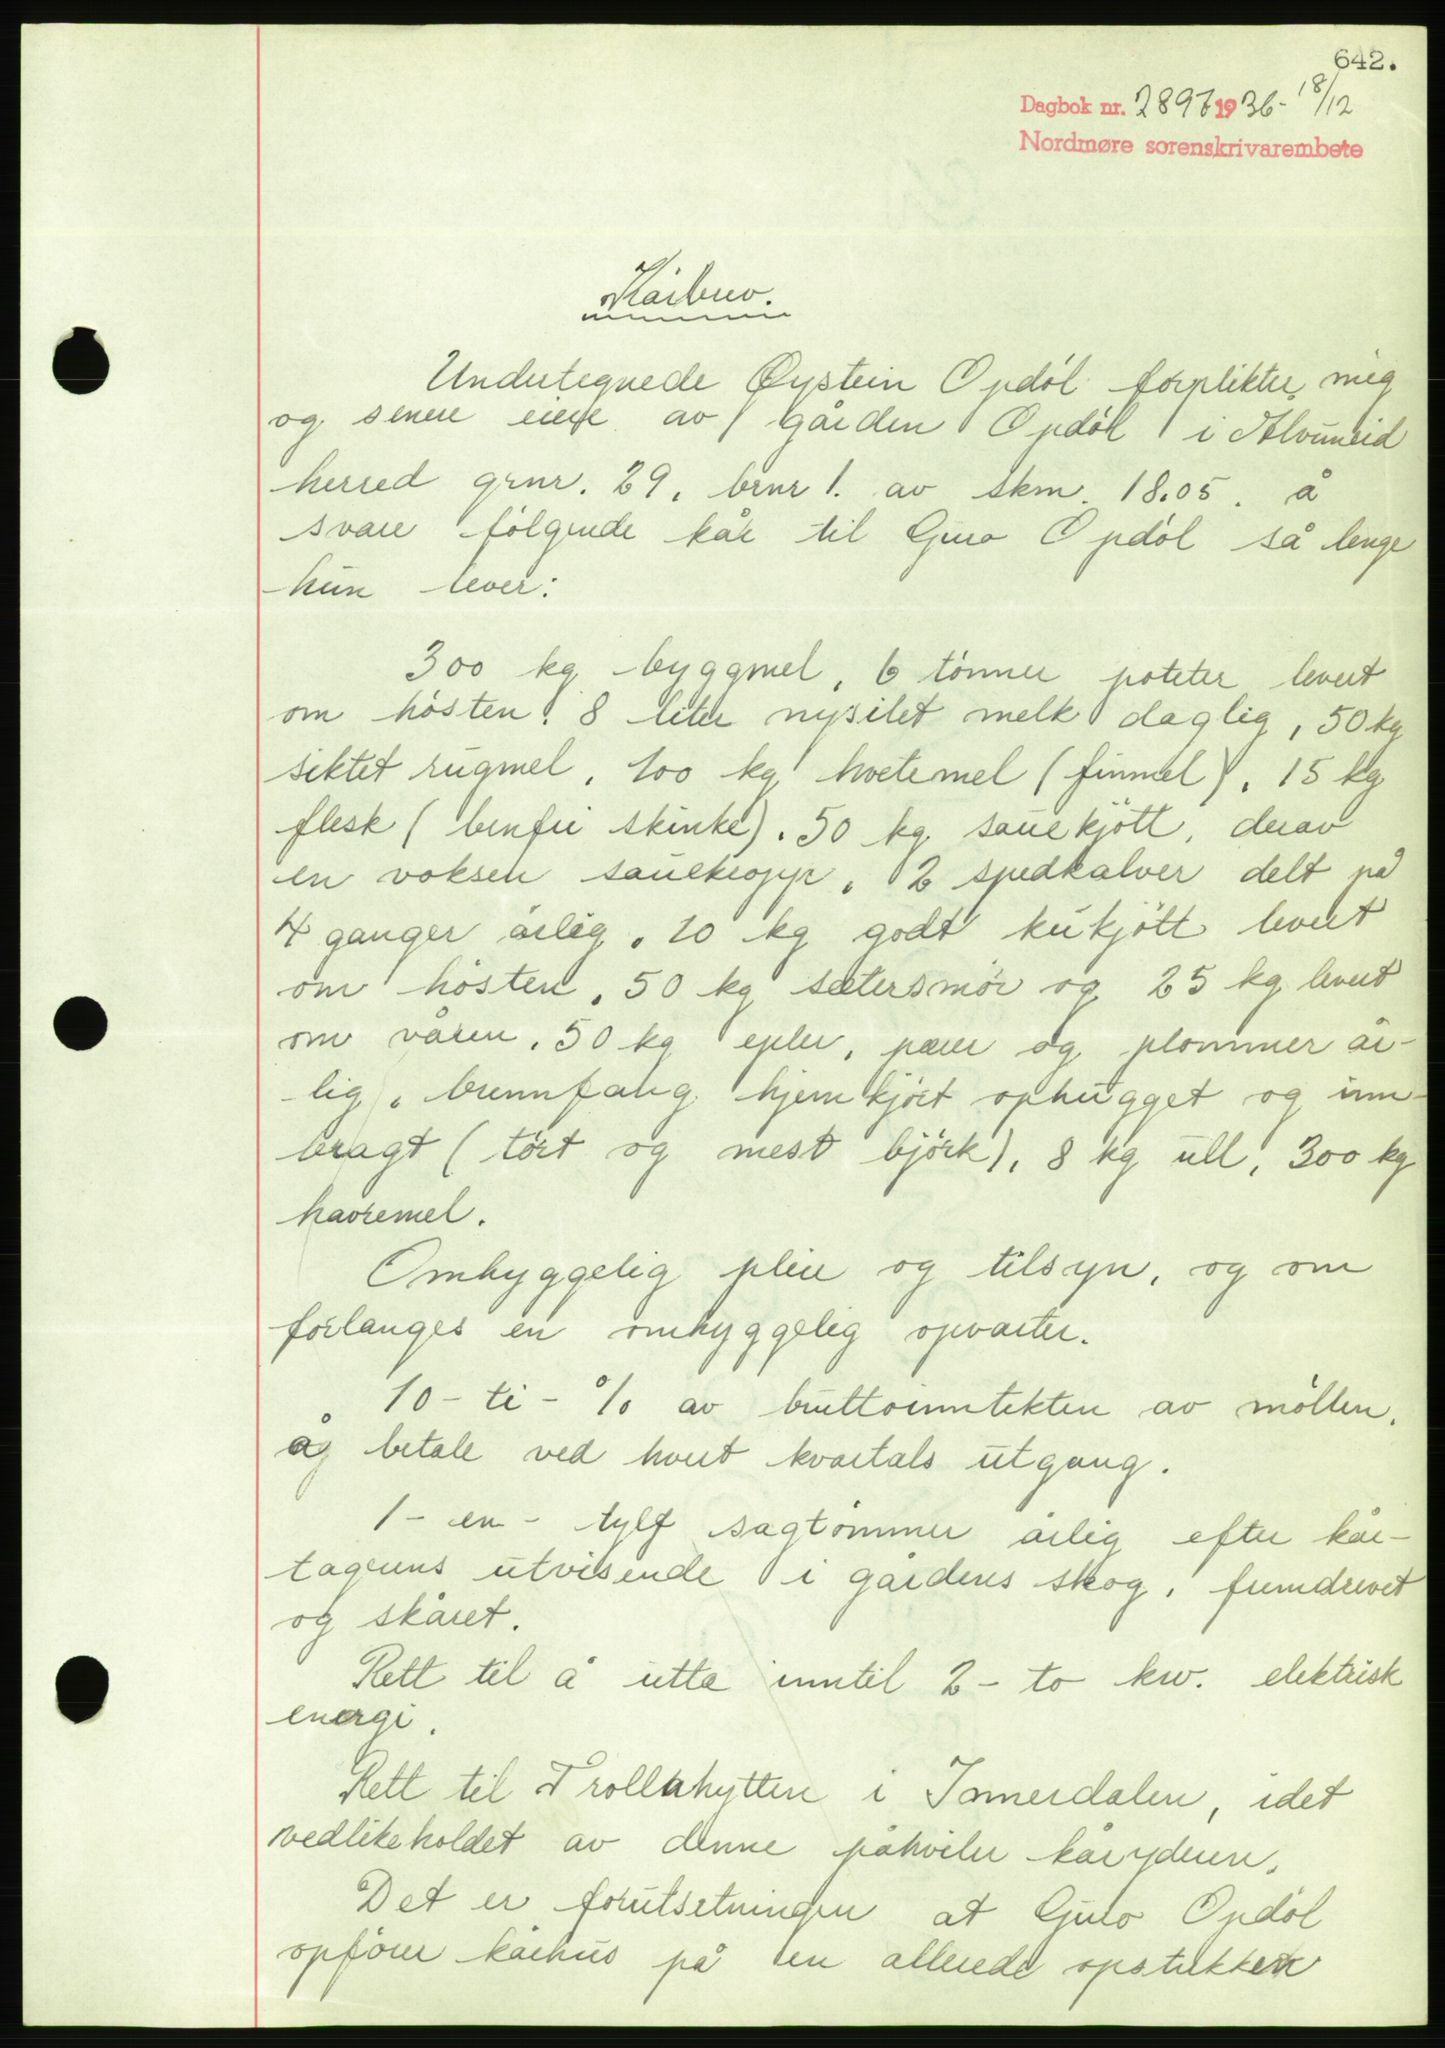 642.
Dagbok nr. 2897 1936 - 18/12
Nordmøre sorenskrivarembete
Kårbrev.
Undertegnede Øystein Opdøl forplikter mig
og senere eiere av gården Opdøl i Ålvundeid
herred grnr. 29, brnr 1. av skm. 18.05. å
svare følgende kår til Guro Opdøl så lenge
hun lever:
300 kg byggmel, 6 tönner poteter levert
om hösten. 8 liter nysilet melk daglig, 50 kg
siktet rugmel, 100 kg hvetemel (finmel), 15 kg
flesk (benfri skinke). 50 kg sauekjött, derav
en voksen sauekropp, 2 spedkalver delt på
4 ganger årlig, 20 kg godt kukjött levert
om hösten, 50 kg sætersmör og 25 kg levert
om våren. 50 kg epler, pærer og plommer år-
lig, brennfang hjemkjört ophugget og inn-
bragt (tört og mest björk), 8 kg ull, 300 kg
havremel.
Omhyggelig pleie og tilsyn, og om
forlanges en omhyggelig opvarter.
10 - ti - % av bruttoinntekten av möllen,
å betale ved hvert kvartals utgang.
1 - en - tylft sagtömmer årlig efter kår-
tagerens utvisende i gårdens skog, fremdrevet
og skåret.
Rett til å utta inntil 2 - to kw. elektrisk
energi.
Rett til Trollahytten i Innerdalen, idet
vedlikeholdet av denne påhviler kåryderen.
Det er forutsetningen at Guro Opdöl
opförer kårhus på en allerede opstukken